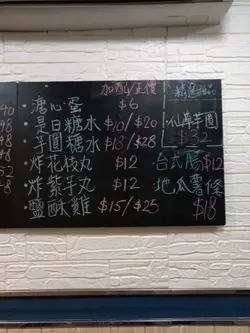 加配/正價
溏心蛋 $6
是日糖水 $10/$20
芋圓糖水 $18/$28
炸花枝丸 $12
炸紫芋丸 $12
鹽酥雞 $15/$25
仙草芋圓
$32
台式腸 $12
地瓜薯條
$18